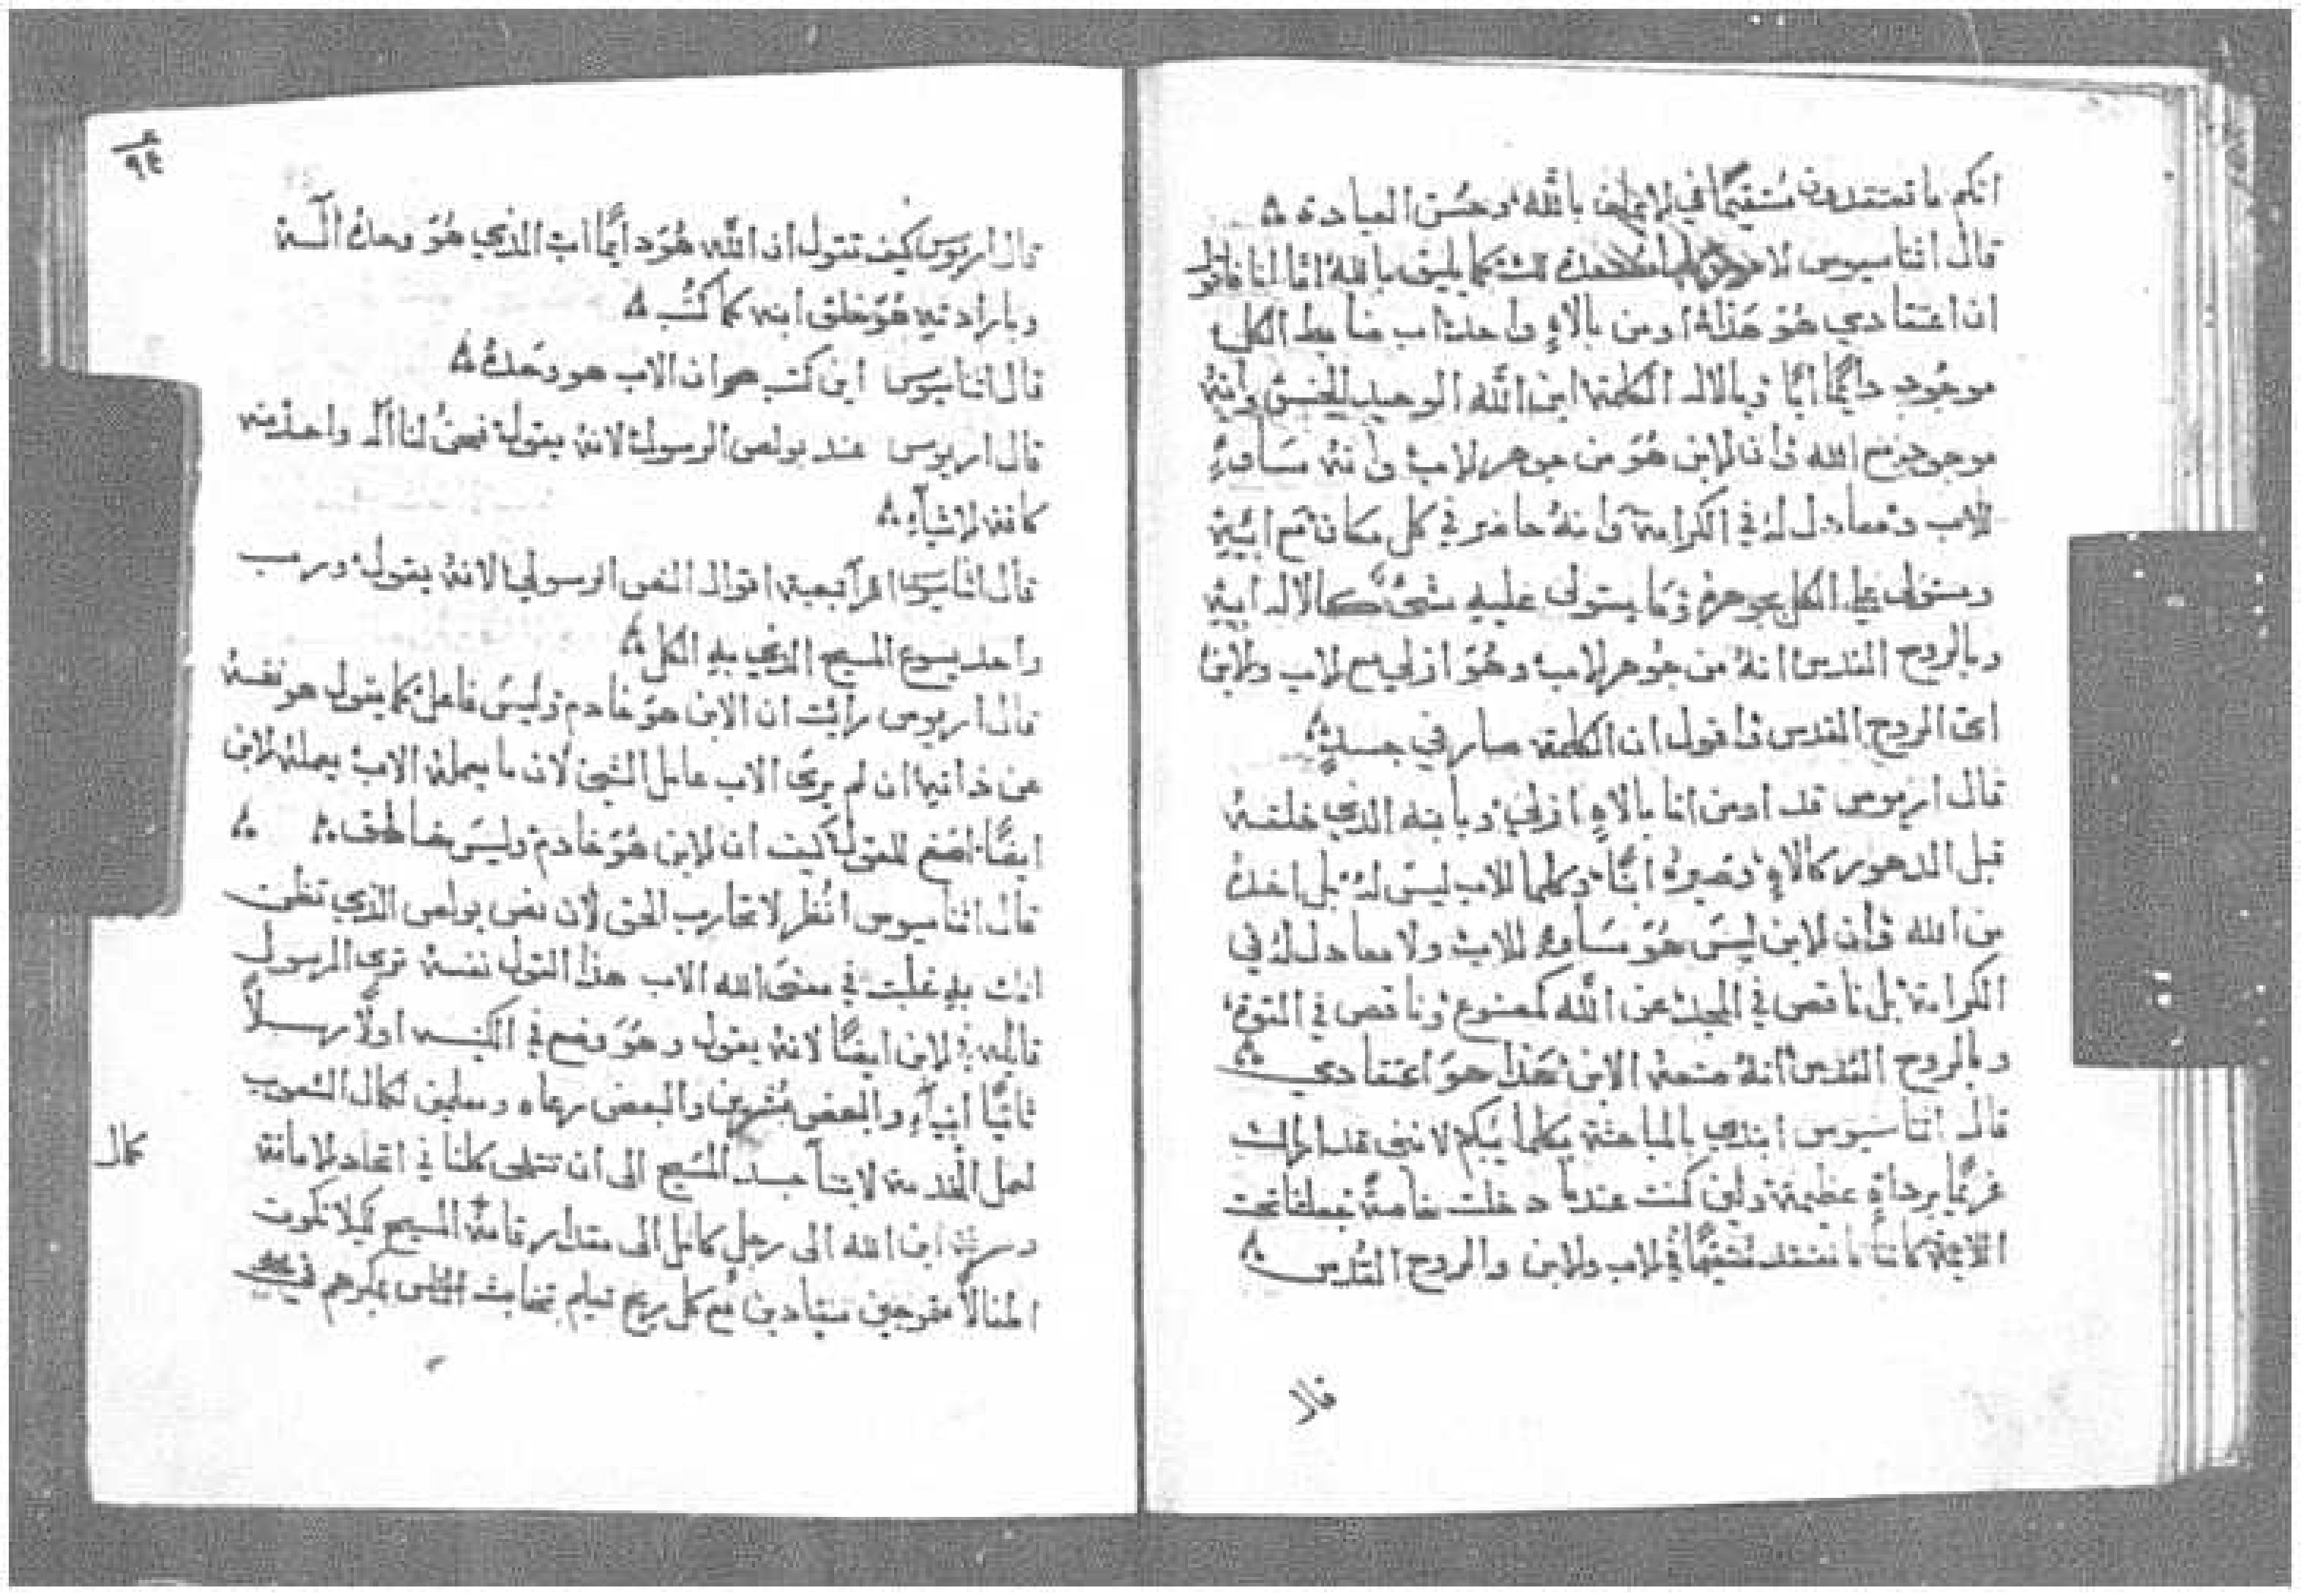 انكم ما تعتقدون مُستقيمًا في الايمان بالله وحُسن العبادة
قال اتناسيوس كما يليق بالله امّا انا فاقول
ان اعتقادي هُوَ هَذا اومن بالاهٍ واحد اب ضابط الكل
موجُود دايمًا ابًا وبالاله الكلمة ابن الله الوحيد الجنس وانهُ
موجود مع الله وان الابن هُوَ من جوهر الاب وانهُ مسَاوٍ
للاب ومعادل لهُ في الكرامة وانهُ حاضر في كل مكان مَع ابيهِ
ومستولى على الكل بجوهرهِ وما يستولى عليه شىٌ كالاله ابيه
وبالروح القدس انهُ من جُوهر الاب وهُوَ ازلي مع الاب والابن
اعنى الروح القدس واقول ان الكلمة صار في جسدٍ
قال اريوس قد اومن انا بالاهٍ ازليٍ وبابنه الذي خلقهُ
قبل الدهور كالاهٍ وصيرهُ ابنًا وكلما للابن ليسَ لهُ بل اخذهُ
من الله وان الابن ليسَ هُوَ مسَاوٍ للاب ولا معادل لهُ في
الكرامة بل ناقص في المجد عن الله كمصنوع وناقص في القوة
وبالروح القدس انهُ صنعة الابن هَذا هوَ اعتقادي
قال اتناسيوس ابتدي بالمباحثة
غريًا برداةٍ عظيمة ولين كنت عندما دخلت خاصة
ما نعتقد مُستقيمًا في الاب والابن والروح القُدس
قال
٩٤
قال اريوس كيف تقول ان الله هُوَ دايمًا اب الذي هُوَ وحدهُ اله
وبارادته هُوَ خلق ابنه كما كُتب
قال اتناسيوس اين كتب هو ان الاب هو وحَدهُ
قال اريوس عند بولص الرسول لانهُ يقول فنحنُ لنا اله واحد منه
كافة الاشيآء
قال اتناسيوس اقرأ بقية اقوال النص الرسولي لانهُ يقول ورب
واحد يسوع المسيح الذي بهِ الكل
قال اريوس رأيت ان الابن هوَ خادم وليسَ فاعل كما يقول هو نفسهُ
من ذاتهِ ان لم يرى الاب عامل الشى لان ما يعملهُ الاب يعملهُ الابن
ايضًا ان الابن هُوَ خادم وليسَ خالق
قال اتناسيوس انُظر لا تحارب الحق لان نص بولص الذي تظن
انك بهِ غلبت في معنى الله الاب هذا القول نفسهُ ترى الرسول
قايله في الابن ايضًا لانهُ يقول وهُوَ وضع في الكنيسه اولًا رسلًا
ثانيًا انبيآء والبعض مُبشرين والبعض رعاه ومعلمين لكمال الشعوب
لعمل الخدمة لابتنآ جسد المسَيح الى ان ننتهى كلنا في اتحاد الامانة
كمال
ومعرفة ابن الله الى رجل كامل الى مقدار قامة المسيح كيلا نكون
اطفالًا متوجين مع كل ريح تعليم